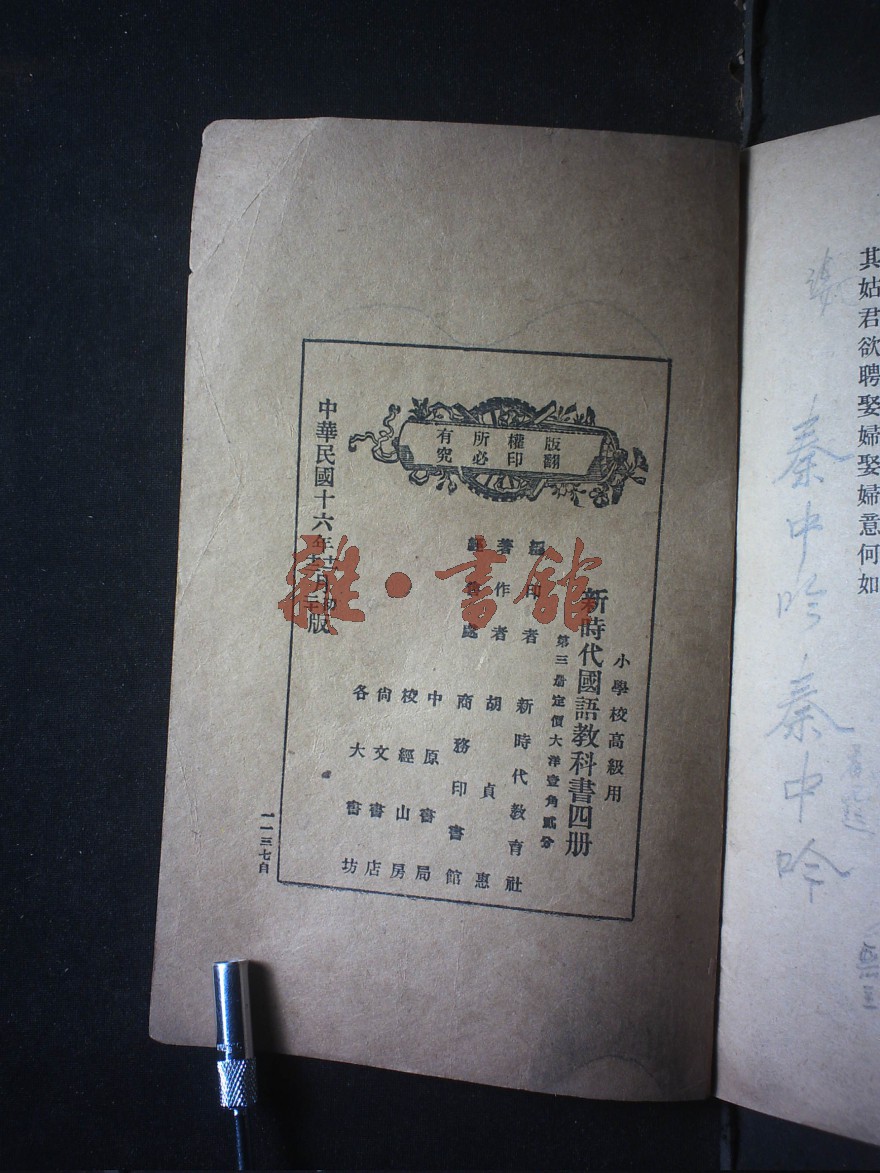 其姑君欲聘娶婦娶婦意何如
秦中吟 秦中吟
版權所有
翻印必究
小學校高級用
新時代國語教科書四册
第三册定價大洋壹角貳分
編印者 新時代教育社
著作者 胡貞惠
經售處 商務印書館
中原書局
校經山房
尙文書店
各大書坊
中華民國十六年
版
一一三七自
雜·書館